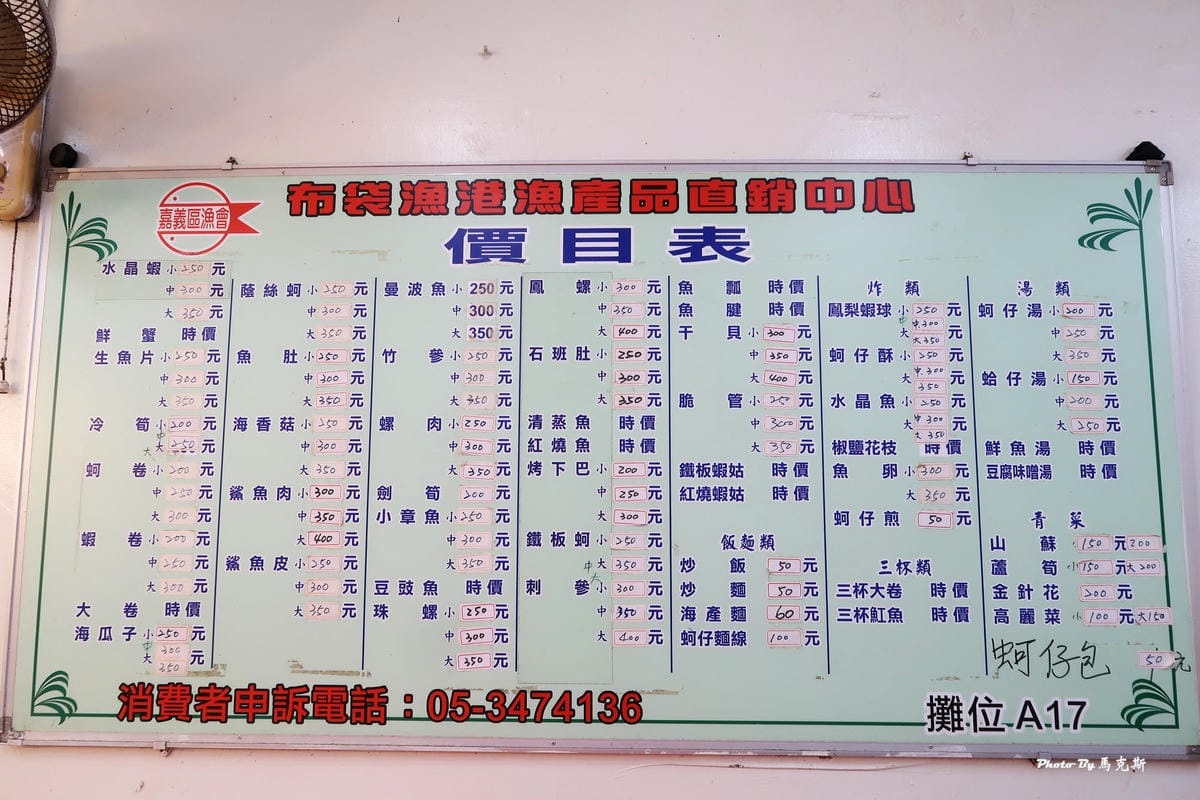 嘉義區漁會
布袋漁港漁產品直銷中心
價目表
水晶蝦 小 250 元
中 300 元
大 350 元
鮮蟹 時價
生魚片 小 250 元
中 300 元
大 350 元
冷筍 小 200 元
中
大 250 元
蚵卷 小 200 元
中 250 元
大 300 元
蝦卷 小 200 元
中 250 元
大 300 元
大卷 時價
海瓜子 小 250 元
中 300
大 350 元
蔭絲蚵 小 250 元
中 300 元
大 350 元
魚肚 小 250 元
中 300 元
大 350 元
海香菇 小 250 元
中 300 元
大 350 元
鯊魚肉 小 300 元
中 350 元
大 400 元
鯊魚皮 小 250 元
中 300 元
大 350 元
曼波魚 小 250 元
中 300 元
大 350 元
竹參 小 250 元
中 300 元
大 350 元
螺肉 小 250 元
中 300 元
大 350 元
劍筍 200 元
小章魚 小 250 元
中 300 元
大 350 元
豆豉魚 時價
珠螺 小 250 元
中 300 元
大 350 元
鳳螺 小 300 元
中 350 元
大 400 元
石斑肚 小 250 元
中 300 元
大 350 元
清蒸魚 時價
紅燒魚 時價
烤下巴 小 200 元
中 250 元
大 300 元
鐵板蚵 小 250 元
中
大 350 元
刺參 小 300 元
中 350 元
大 400 元
魚瓢 時價
魚腱 時價
干貝 小 300 元
中 350 元
大 400 元
脆管 小 250 元
中 300 元
大 350 元
鐵板蝦姑 時價
紅燒蝦姑 時價
飯麵類
炒飯 50 元
炒麵 50 元
海產麵 60 元
蚵仔麵線 100 元
炸類
鳳梨蝦球 小 250 元
中 300 元
大 350
蚵仔酥 小 250 元
中 300
大 350 元
水晶魚 小 250 元
中 300 元
大 350
椒鹽花枝 時價
魚卵 小 300 元
大 350 元
蚵仔煎 50 元
三杯類
三杯大卷 時價
三杯魟魚 時價
湯類
蚵仔湯 小 200 元
中 250 元
大 350 元
蛤仔湯 小 150 元
中 200 元
大 250 元
鮮魚湯 時價
豆腐味噌湯 時價
青菜
山蘇 小 150 元 200
蘆筍 小 150 元 大 200
金針花 200 元
高麗菜 小 100 元 大 150
蚵仔包 50 元
消費者申訴電話：05-3474136
攤位 A17
Photo By 馬克斯